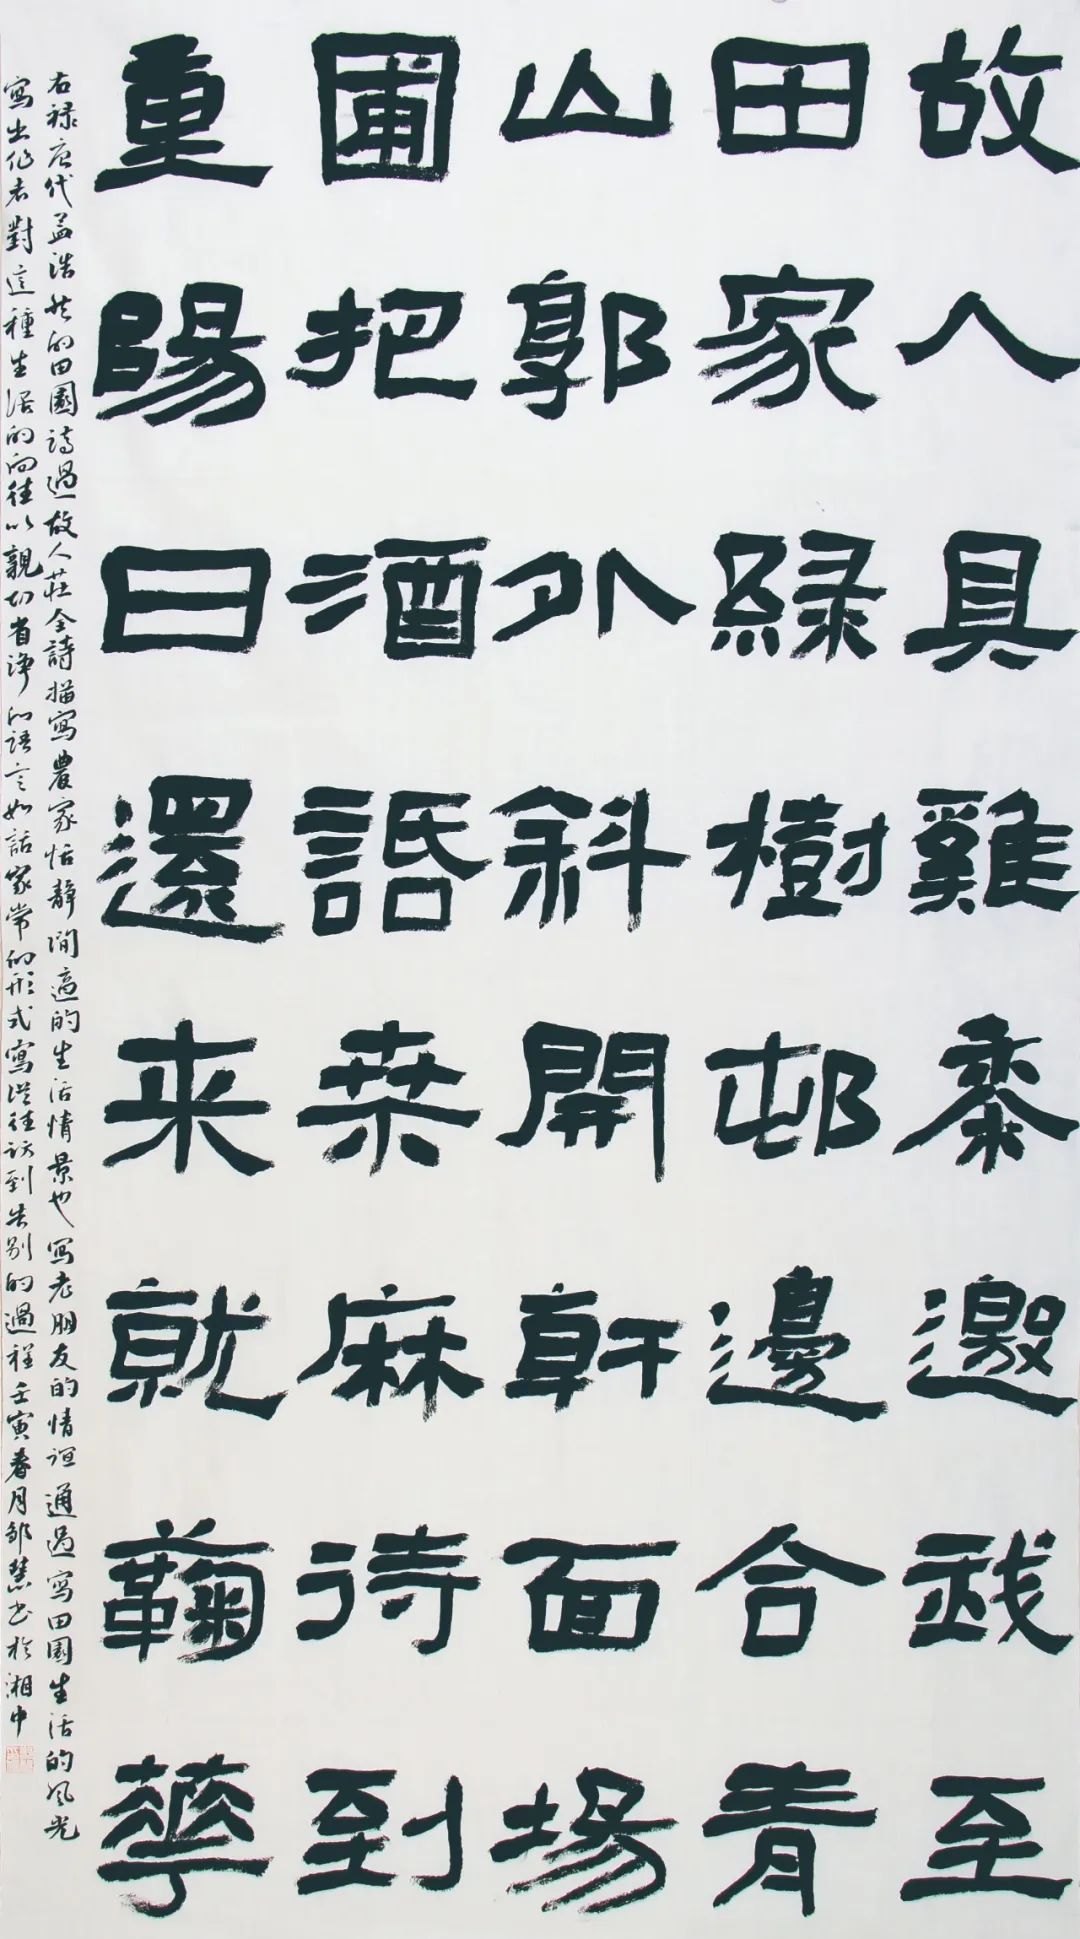 故人具雞黍邀我至
田家綠樹邨邊合青
山郭外斜開軒面場
圃把酒話桒麻待到
重陽日還来就鞠華
右禄唐代孟浩然的田園詩過故人莊全詩描寫農家恬靜閒適的生活情景也寫老朋友的情誼通過寫田園生活的风光
寫出作者對這種生活的向往以親切省净的語言如話家常的形式寫從往訪到告别的過程壬寅春月邹慧書於湘中